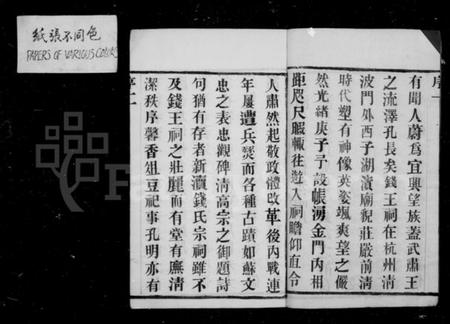 紙張不同色
PAPERS OF VARIOUS COLORS
序一
有聞人蔚爲宜興望族蓋武肅王
之流澤孔長矣錢王祠在杭州清
波門外西子湖濱廟貌莊嚴前清
時代塑有神像英姿颯爽望之儼
然光緒庚子予設帳湧金門內相
距咫尺暇輒往遊入祠瞻仰直令
人肅然起敬政體改革後內戰連
年屢遭兵燹而各種古蹟如蘇文
忠之表忠觀碑清高宗之御題詩
句猶有存者新瀆錢氏宗祠雖不
及錢王祠之壯麗而有堂有廡清
潔秩序馨香俎豆祀事孔明亦有
序二